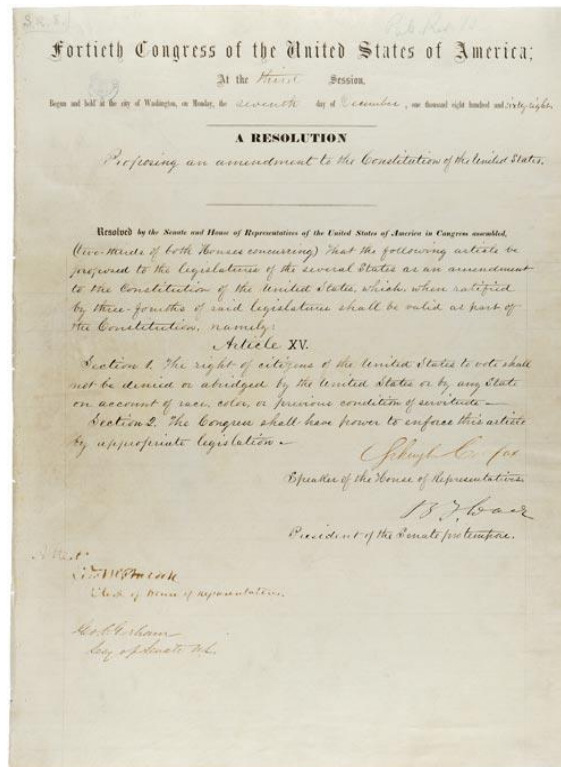 S.R.8.
Fortieth Congress of the United States of America;
At the third Session,
Begun and held at the city of Washington, on Monday, the seventh day of December, one thousand eight hundred and sixty-eight.
A RESOLUTION
Proposing an amendment to the Constitution of the United States.
Resolved by the Senate and House of Representatives of the United States of America in Congress assembled,
(two-thirds of both Houses concurring) That the following article be
proposed to the legislatures of the several States as an amendment
to the Constitution of the United States, which, when ratified
by three-fourths of said legislatures shall be valid as part of
the Constitution, namely:
Article XV.
Section 1. The right of citizens of the United States to vote shall
not be denied or abridged by the United States or by any State
on account of race, color, or previous condition of servitude—
Section 2. The Congress shall have power to enforce this article
by appropriate legislation—
Schuyler Colfax
Speaker of the House of Representatives.
B F Wade
President of the Senate pro tempore.
Attest:
Clerk of House of Representatives.
Geo C Gorham
Secy of Senate U.S.